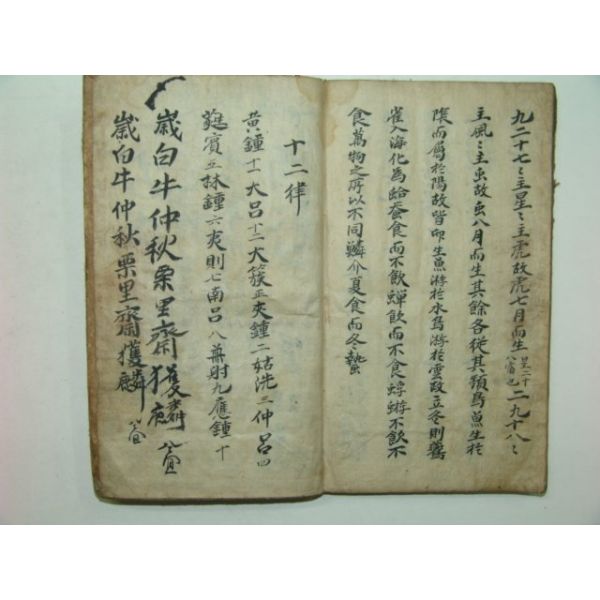 九二十七〻主星〻主虎故虎七月而生星二十八宿也二九十八〻
主風〻主虫故虫八月而生其餘各從其類鳥魚生於
陰而屬於陽故皆卵生魚游於水鳥游於雲故立冬則鷰
雀入海化為蛤蚕食而不飲蟬飮而不食蜉蝣不飲不
食萬物之所以不同鱗介夏食而冬蟄
十二律
黃鍾十一大呂十二大簇正夾鍾二姑洗三仲呂四
蕤賓五林鍾六夷則七南呂八無射九應鍾十
歲白牛仲秋栗里齋獲麟
歲白牛仲秋栗里齋獲麟